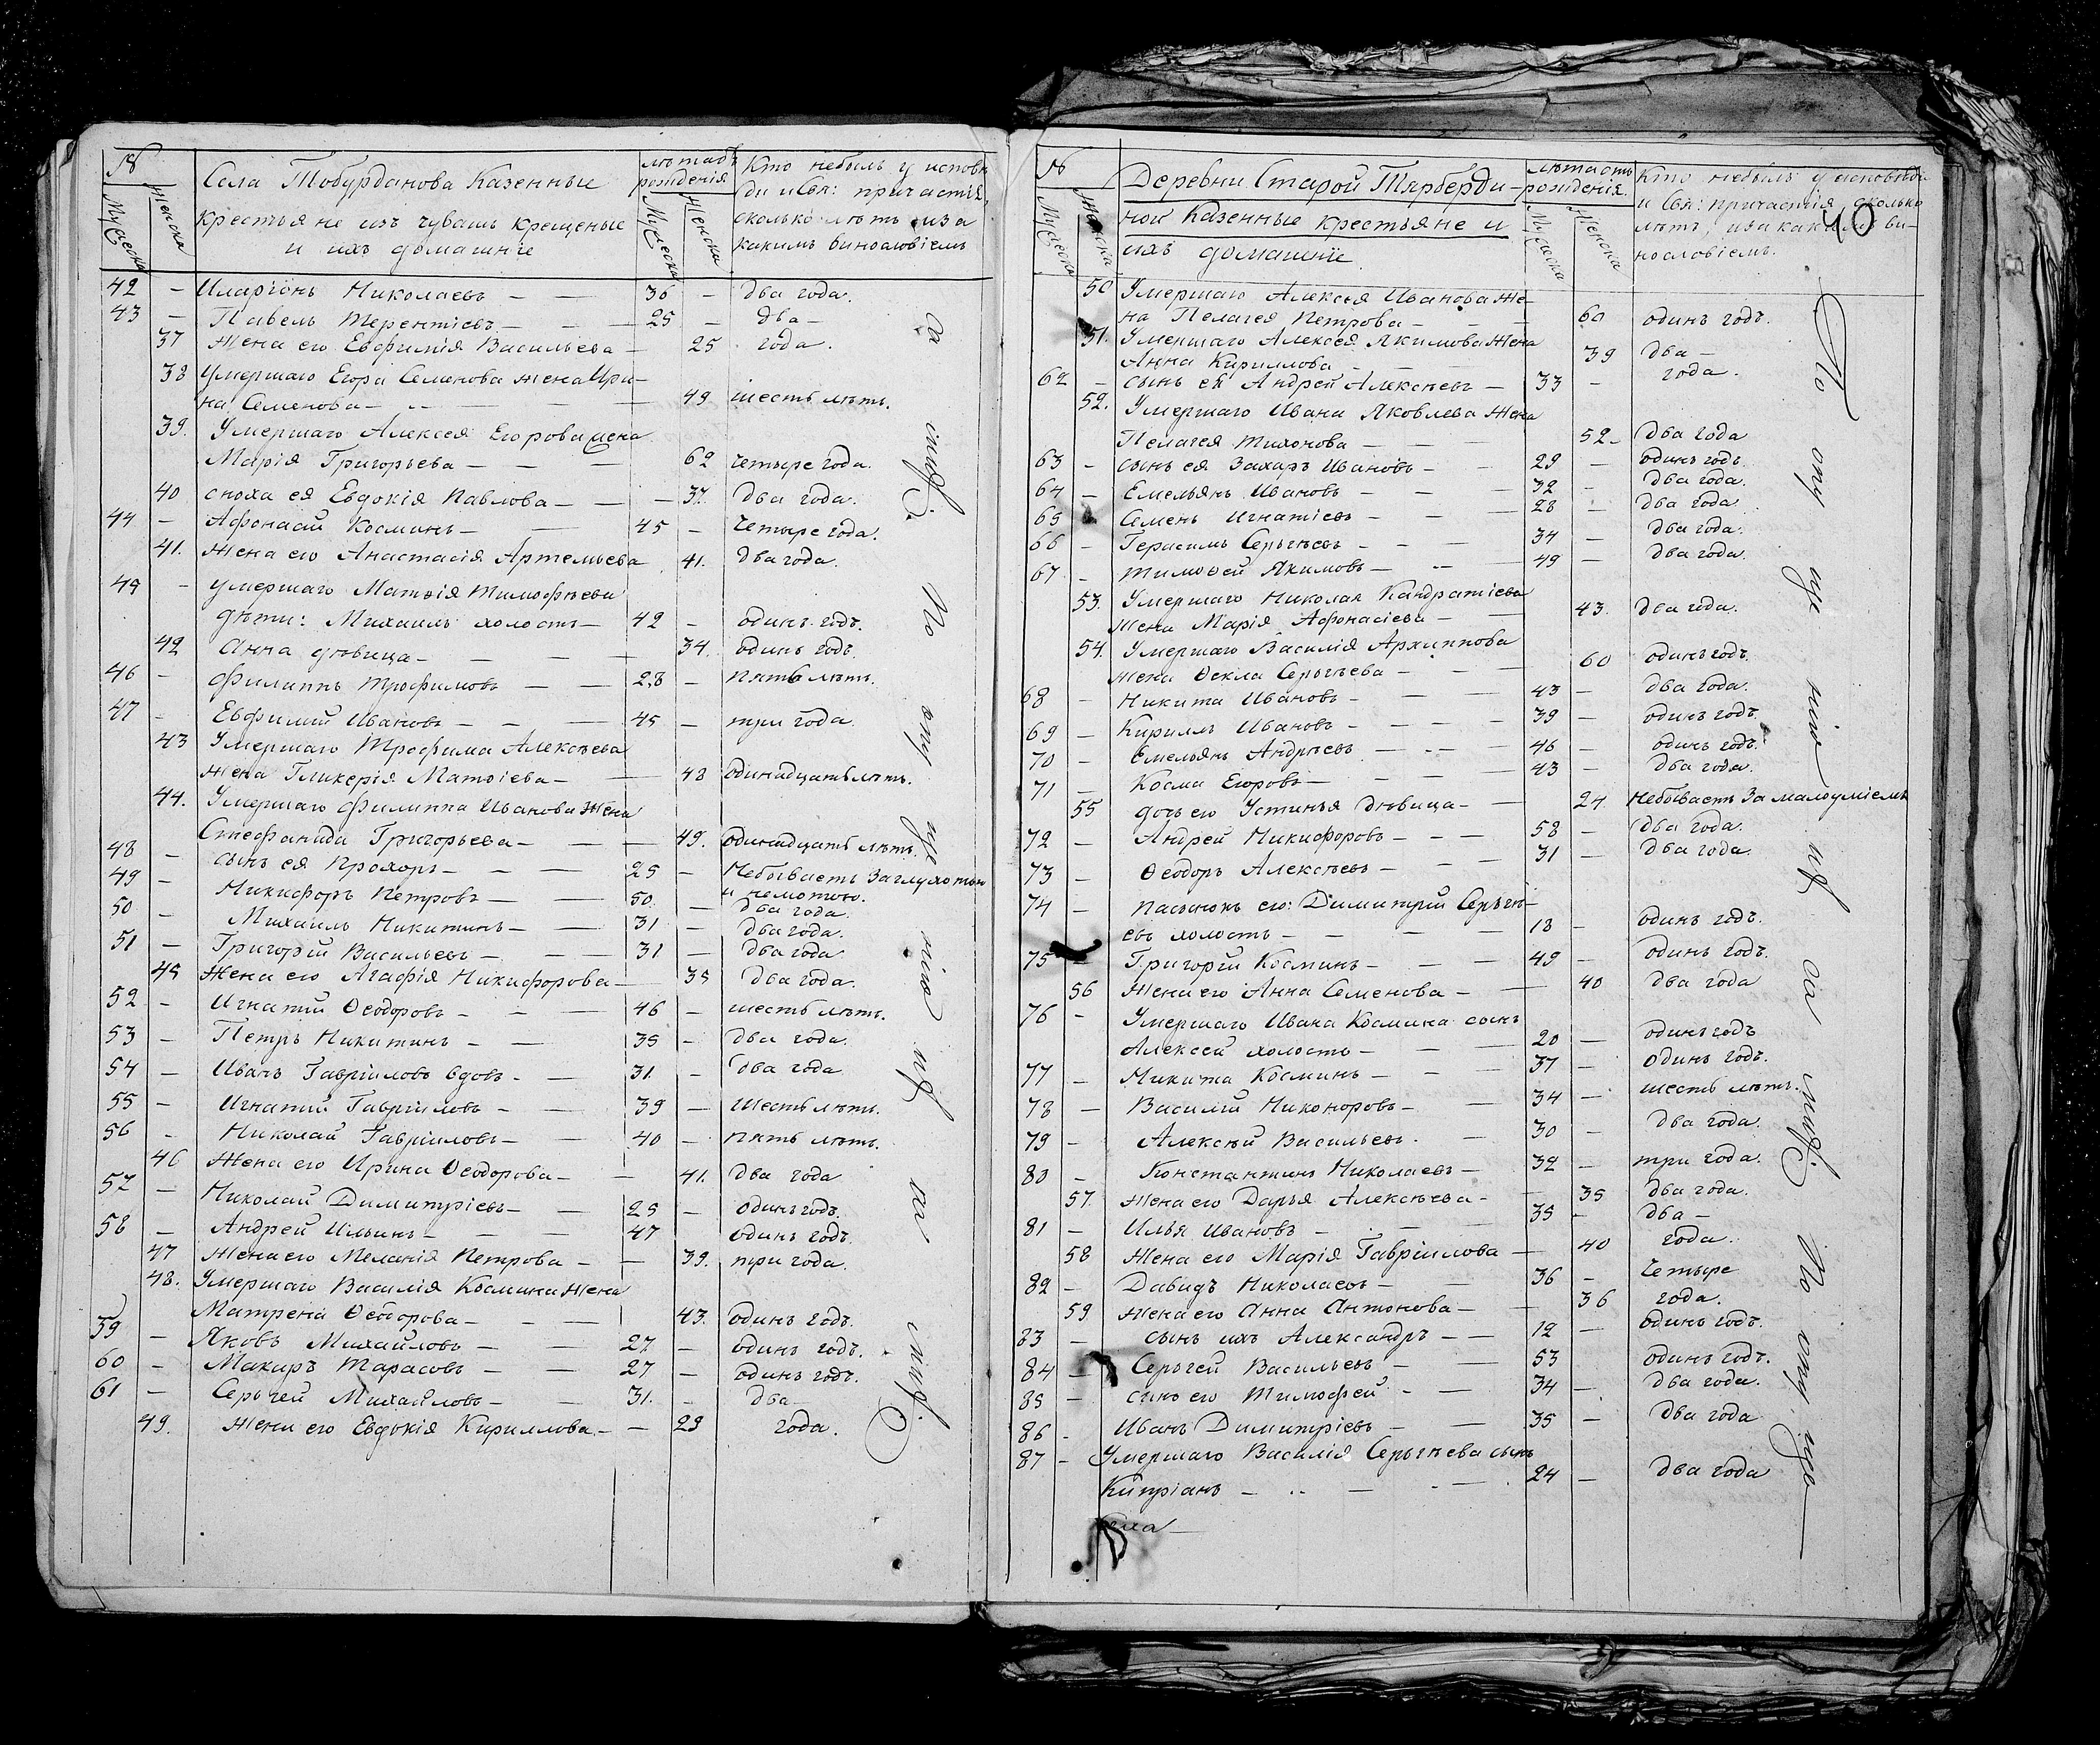 №
Мужеска
Женска
Села Тобурданова Казенные
крестьяне изъ чувашъ крещеные
и ихъ домашніе
лѣта отъ
рожденія
Мужеска
Женска
Кто небылъ у исповѣ
ди и Св: причастія,
сколько лѣтъ и за
какимъ винословіемъ
42 – Иларіонъ Николаевъ – – 36 – два года.
43 – Павелъ Терентіевъ – – – 25 – два –
37 жена его Евфимія Васильева – 25 года.
38 Умершаго Егора Семенова жена Ири-
на Семенова – – – – 49 шесть лѣтъ.
39. Умершаго Алексея Егорова жена
Марія Григорьева – – – 62 четыре года.
40 сноха ея Евдокія Павлова – – – 37. два года.
44 – Афонасій Косминъ – – 45 – четыре года.
41. жена его Анастасія Артемьева 41. два года.
45 – умершаго Матвія Тимофѣева
дѣти: Михаилъ холостъ – 42 – одинъ годъ.
42 Анна дѣвица – – – – 34. одинъ годъ.
46 – Филиппъ Трофимовъ – – 28 – пять лѣтъ.
47 – Евфимій Ивановъ – – – 45 – три года.
43 Умершаго Трофима Алексѣева
жена Гликерія Матвіева – – 48 одинадцать лѣтъ.
44. Умершаго Филиппа Иванова жена
Стефанида Григорьева – – – 49. одинадцать лѣтъ.
48 – сынъ ея Прохоръ – – – 25 – Небываетъ за глухотою
и немотою.
49 – Никифоръ Петровъ – – 50. – два года.
50 – Михаилъ Никитинъ – – 31 – два года.
51 – Григорій Васильевъ – – – 31 – два года
45 жена его Агафія Никифорова – 35 два года.
52 – Игнатій Ѳеодоровъ – – – 46 – шесть лѣтъ.
53 – Петръ Никитинъ – – 35 – два года.
54 – Иванъ Гавріиловъ вдовъ – – 31. – два года
55 – Игнатій Гавріиловъ – – 39 – шесть лѣтъ.
56 – Николай Гавріиловъ – – 40 – пять лѣтъ.
46 жена его Ирина Ѳеодорова – – 41. два года
57 – Николай Димитріевъ – – 25 – одинъ годъ.
58 – Андрей Ильинъ – – – 47 одинъ годъ.
47 жена его Меланія Петрова – – 39. три года.
48. Умершаго Василія Космина жена
Матрена Ѳеодорова – – – 43. одинъ годъ.
59 – Яковъ Михайловъ – – 27. – одинъ годъ.
60 – Макаръ Тарасовъ – – 27 – одинъ годъ.
61 – Сергей Михайловъ – – 31. – два –
49. жена его Евдокія Кириллова – – 29 года.
№
Мужеска
Женска
Деревни Старой Тярберди-
ной казенные крестьяне и
ихъ домашніе.
лѣта отъ
рожденія.
Мужеска
Женска
Кто небылъ у исповѣди
и Св: причастія, сколько
лѣтъ, и за какимъ ви-
нословіемъ.
40
50 Умершаго Алексѣя Иванова же-
на Пелагея Петрова – – – 60 одинъ годъ.
51. Умершаго Алексея Якимова жена
Анна Кириллова – – – – 39 два –
62 – сынъ ея Андрей Алексѣевъ – 33 – года.
52. Умершаго Ивана Яковлева жена
Пелагея Тихонова – – – 52 – два года
63 – сынъ ея Захаръ Ивановъ – – 29 – одинъ годъ.
64 – Емельянъ Ивановъ – – – 32 – два года.
65 Семенъ Игнатіевъ – – – 28 – два года
66 – Герасимъ Сергѣевъ – – – 34 – два года.
67 – Тимоѳей Якимовъ – – – 49 – два года.
53. Умершаго Николая Кандратіева
жена Марія Афонасіева – – 43. два года.
54. Умершаго Василія Архиппова
жена Ѳекла Сергѣева – – 60 одинъ годъ.
68 – Никита Ивановъ – – – 43 – два года.
69 – Кириллъ Ивановъ – – – – 39 – одинъ годъ.
70 – Емельянъ Андрѣевъ – – – 46 – одинъ годъ.
71 – Косма Егоровъ – – – – 43 – два года.
55 дочь его Устинья дѣвица – – 24 Небываетъ за малоуміемъ
72 – Андрей Никифоровъ – – – 58 – два года.
73 – Ѳеодоръ Алексѣевъ – – – 31 – два года.
74 – пасынокъ его: Димитрій Сергѣ-
евъ холостъ – – – – 18 – одинъ годъ.
75 – Григорій Косминъ – – – 49 – одинъ годъ.
56 жена его Анна Семенова – – 40 два года
76 – Умершаго Ивана Космина сынъ
Алексей холостъ – – – 20 – одинъ годъ
77 – Никита Косминъ – – – 37 – одинъ годъ.
78 – Василій Никоноровъ – – 34 – шесть лѣтъ.
79 – Алексѣй Васильевъ. – 30 – два года.
80 – Константинъ Николаевъ – 32 – три года.
57. жена его Дарья Алексѣева – – 35 два года.
81 – Илья Ивановъ – – – 35 – два –
58 жена его Марія Гавріилова – 40 года.
82 – Давидъ Николаевъ – – 36 – четыре
59 жена его Анна Антонова – – 36 года.
83 – сынъ ихъ Александръ – – 12 – одинъ годъ.
84 – Сергей Васильевъ – – 53 одинъ годъ.
85 – сынъ его Тимофей – – 34 – два года.
86 – Иванъ Димитріевъ – – 35 – два года
87 – Умершаго Василія Сергѣева сынъ
Кипріанъ – – – – – 24 – два года